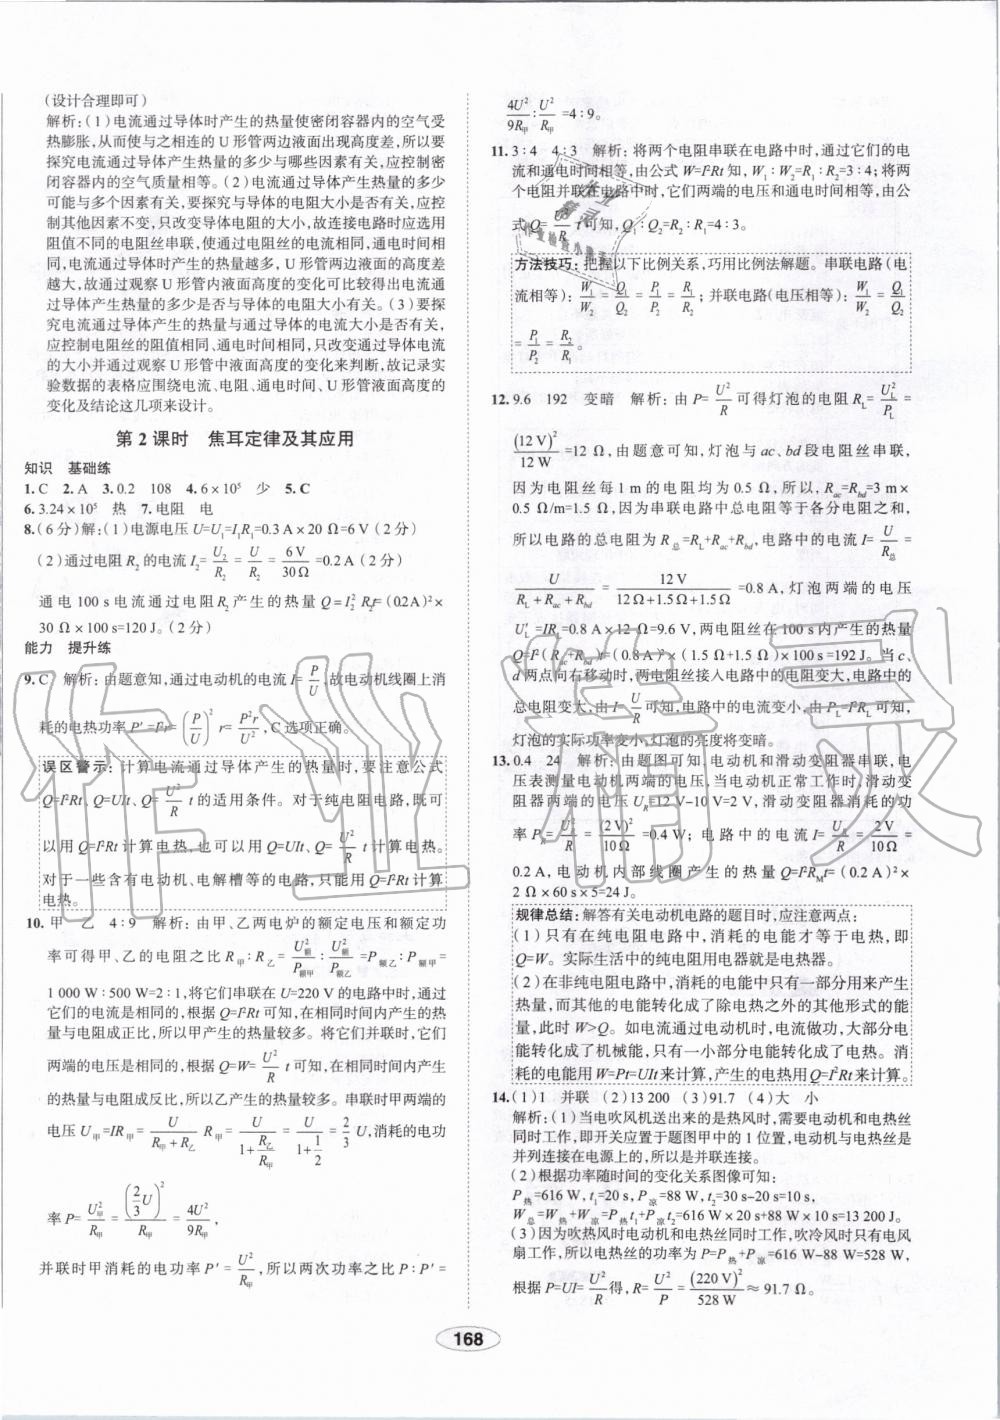 (设计合理即可)
解析:(1)电流通过导体时产生的热量使密闭容器内的空气受
热膨胀,从而使与之相连的 U 形管两边液面出现高度差,所以要
探究电流通过导体产生热量的多少与哪些因素有关,应控制密
闭容器内的空气质量相等。(2)电流通过导体时产生热量多少
可能与多个因素有关,要探究与导体电阻大小是否有关,应控
制其他因素不变,只改变导体电阻的大小,故连接电路时应选用
阻值不同的电阻丝串联,使通过电阻丝的电流相同,通电时间相
同,电流通过导体产生的热量越多,U 形管两边液面的高度差
越大,故通过观察 U 形管内液面高度的变化可比较得出电流通
过导体产生热量的多少与导体的电阻大小有关。(3)要探
究电流通过导体产生的热量与通过的电流大小是否有关,
应控制电阻丝的阻值相同、通电时间相同,只改变通过导体电流
的大小并通过观察 U 形管中液面高度的变化来判断,故记录实
验数据的表格应围绕电流、电阻、通电时间、U 形管液面高度的
变化及结论这几项来设计。
第 2 课时 焦耳定律及其应用
知识 基础练
1.C 2.A 3.0.2 108 4.6×10⁵ 少 5.C
6.3.24×10⁵ 热 7.电阻 电
8.(6分)解:(1)电源电压 U=U₁=I₁R₁=0.3 A×20 Ω=6 V(2分)
(2)通过电阻 R₂ 的电流 I₂=U₂/R₂=U/R₂=6 V/30 Ω=0.2 A(2分)
通电 100 s 电流通过电阻 R₂ 产生的热量 Q=I₂²R₂t=(0.2 A)²×
30 Ω×100 s=120 J。(2分)
能力 提升练
9.C 解析:由题意知,通过电动机的电流 I=P/U,故电动机线圈上消
耗的电热功率 P′=I²r=(P/U)²r=P²r/U²,C 选项正确。
误区警示:计算电流通过导体产生的热量时,要注意公式
Q=I²Rt、Q=UIt、Q=U²/R t 的适用条件。对于纯电阻电路,既可
以用 Q=I²Rt 计算电热,也可以用 Q=UIt、Q=U²/R t 计算电热。
对于一些含有电动机、电解槽等的电路,只能用 Q=I²Rt 计算
电热。
10.甲 乙 4∶9 解析:由甲、乙两电炉的额定电压和额定功
率可得甲、乙的电阻之比 R甲∶R乙=U额²/P额甲∶U额²/P额乙=P额乙∶P额甲=
1 000 W∶500 W=2∶1,将它们串联在 U=220 V 的电路中时,通过
它们的电流是相同的,根据 Q=I²Rt 可知,在相同时间内产生的热
量与电阻成正比,所以甲产生的热量较多。将它们并联时,它们
两端的电压是相同的,根据 Q=W=U²/R t 可知,在相同时间内产生
的热量与电阻成反比,所以乙产生的热量较多。串联时甲两端的
电压 U甲=IR甲=U/(R甲+R乙) R甲=U/(1+R乙/R甲)=U/(1+1/2)=2/3 U,消耗的电功
率 P=U甲²/R甲=(2/3 U)²/R甲=4U²/9R甲,
并联时甲消耗的电功率 P′=U²/R甲,所以两次功率之比 P∶P′=
4U²/9R甲∶U²/R甲=4∶9。
11.3∶4 4∶3 解析:将两个电阻串联在电路中时,通过它们的电
流和通电时间相等,由公式 W=I²Rt 知,W₁∶W₂=R₁∶R₂=3∶4;将两
个电阻并联在电路中时,它们两端的电压和通电时间相等,由公
式 Q=U²/R t 可知,Q₁∶Q₂=R₂∶R₁=4∶3。
方法技巧:把握以下比例关系,巧用比例法解题。串联电路(电
流相等):W₁/W₂=Q₁/Q₂=P₁/P₂=R₁/R₂;并联电路(电压相等):W₁/W₂=Q₁/Q₂
=P₁/P₂=R₂/R₁。
12.9.6 192 变暗 解析:由 P=U²/R 可得灯泡的电阻 R_L=U_L²/P_L=
(12 V)²/12 W=12 Ω,由题意可知,灯泡与 ac、bd 段电阻丝串联,
因为电阻丝每 1 m 的电阻均为 0.5 Ω,所以,R_ac=R_bd=3 m×
0.5 Ω/m=1.5 Ω,因为串联电路中总电阻等于各分电阻之和,
所以电路的总电阻为 R总=R_L+R_ac+R_bd,电路中的电流 I=U/R总=
U/(R_L+R_ac+R_bd)=12 V/(12 Ω+1.5 Ω+1.5 Ω)=0.8 A,灯泡两端的电压
U_L′=IR_L=0.8 A×12 Ω=9.6 V,两电阻丝在 100 s 内产生的热量
Q=I²(R_ac+R_bd)t=(0.8 A)²×(1.5 Ω+1.5 Ω)×100 s=192 J。当 c、
d 两点向右移动时,两电阻丝接入电路中的电阻变大,电路中的总
电阻变大,由 I=U/R 可知,电路中的电流变小,由 P_L=I²R_L 可知,
灯泡的实际功率变小,灯泡的亮度将变暗。
13.0.4 24 解析:由题图可知,电动机和滑动变阻器串联,电
压表测量电动机两端的电压,当电动机正常工作时,滑动变
阻器两端的电压 U_R=12 V-10 V=2 V,滑动变阻器消耗的功
率 P_R=U_R²/R=(2 V)²/10 Ω=0.4 W;电路中的电流 I=U_R/R=2 V/10 Ω=
0.2 A,电动机内部线圈产生的热量 Q=I²R_Mt=(0.2 A)²×
2 Ω×60 s×5=24 J。
规律总结:解答有关电动机电路的题目时,应注意两点:
(1)只有在纯电阻电路中,消耗的电能才等于电热,即
Q=W。实际生活中的纯电阻用电器就是电热器。
(2)在非纯电阻电路中,消耗的电能中只有一部分用来产生
热量,而其他的电能转化成了除电热之外的其他形式的能
量,此时 W>Q。如电流通过电动机时,电流做功,大部分电
能转化成了机械能,只有一小部分电能转化成了电热。消
耗的电能用 W=Pt=UIt 来计算,产生的电热用 Q=I²Rt 来计算。
14.(1)1 并联 (2)13 200 (3)91.7 (4)大 小
解析:(1)当电吹风机送出来的是热风时,需要电动机和电热丝
同时工作,即开关应置于题图甲中的 1 位置,电动机与电热丝是
并列连接在电源上的,所以是并联连接。
(2)根据功率随时间的变化关系图像可知:
P热=616 W,t₁=20 s,P凉=88 W,t₂=30 s-20 s=10 s,
W总=W热+W凉=P热t₁+P凉t₂=616 W×20 s+88 W×10 s=13 200 J。
(3)因为吹热风时电动机和电热丝同时工作,吹冷风时只有电风
扇工作,所以电热丝的功率为 P=P热+P凉=616 W-88 W=528 W,
根据 P=UI=U²/R 得,R=U²/P=(220 V)²/528 W≈91.7 Ω。
168
作业精灵